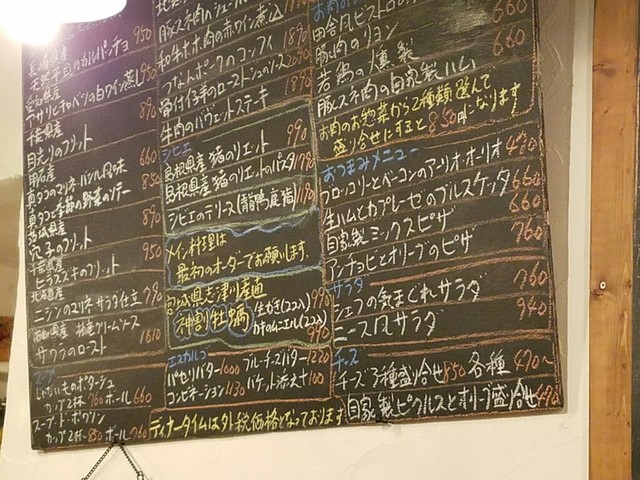 長崎県産
天然平目のカルパッチョ 950
愛知県産
アサリと春キャベツの白ワイン蒸し 950
千葉県産
目光りのフリット 890
明石産
真ダコのマリネ バジル風味 660
真ダコと季節の野菜のソテー 850
宮城県産
穴子のフリット 890
千葉県産
ヒラスズキのフリット 950
北海道産
ニシンのマリネ サラダ仕立 790
サワラのロースト 1610
スープ
じゃがいものポタージュ
カップ2杯 760 ボール 660
スープ・ド・ポワソン
カップ2杯 850 ボール 760
豚スネ肉の
和牛ホホ肉の赤ワイン煮込 1890
つなんポークのコンフィ 1790
骨付仔羊のロースト 1890
牛肉のバヴェットステーキ
ジビエ
島根県産 猪のリエット 990
島根県産 猪のリエットのパスタ 1790
ジビエのテリーヌ 1190
メイン料理は
最初のオーダーでお願いします。
宮城県志津川産直
神割牡蠣
生かき(2コ入) 990
カキのムニエル(2コ入) 990
エスカルゴ
パセリバター 1000 ブルーチーズバター 1220
コンビネーション 1130 バケット添え 100
ディナータイムは外税価格となっております
田舎風 660
豚肉のリヨン
若鶏の燻製 660
豚スネ肉の自家製ハム
お肉のお惣菜から2種類選んで
盛り合せにすると850円になります
おつまみメニュー
ブロッコリーとベーコンのアーリオ・オーリオ 490
生ハムとカプレーゼのブルスケッタ 660
自家製ミックスピザ 660
アンチョビとオリーブのピザ 760
サラダ
シェフの気まぐれサラダ 760
ニース風サラダ 940
チーズ
チーズ3種盛り合せ 850 各種 470〜
自家製ピクルスとオリーブ盛り合せ 490